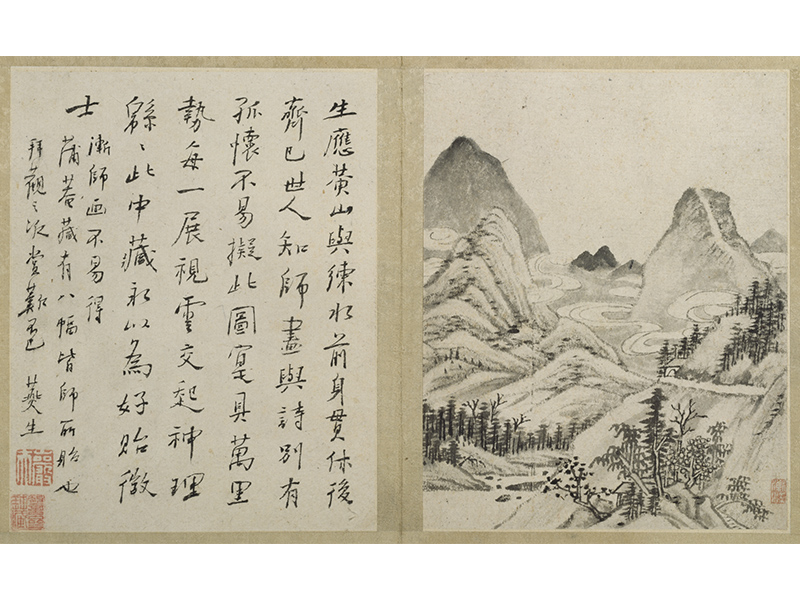 生應黃山與練水前身貫休後
齊已世人知師畫與詩別有
孤懷不易擬此圖寔具萬里
勢每一展視靈交起神理
緜〻此中藏永以為好貽徽
士
漸師画不易得
蒲菴藏有八幅皆師所貽也
拜觀之次賞歎不已
蕺生